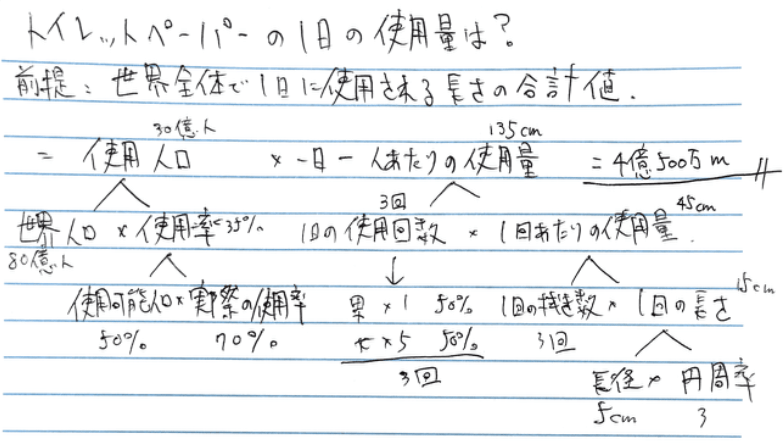 トイレットペーパーの1日の使用量は?
前提:世界全体で1日に使用される長さの合計値.
30億人 135cm
= 使用人口 × 一日一人あたりの使用量 = 4億500万m
3回 45cm
世界人口 × 使用率 35% 1日の使用回数 × 1回あたりの使用量.
80億人
15cm
使用可能人口 × 実際の使用率 男×1 50% 1回の拭き数 × 1回の長さ
50% 70% 女×5 50% 3回
3回 長径 × 円周率
5cm 3